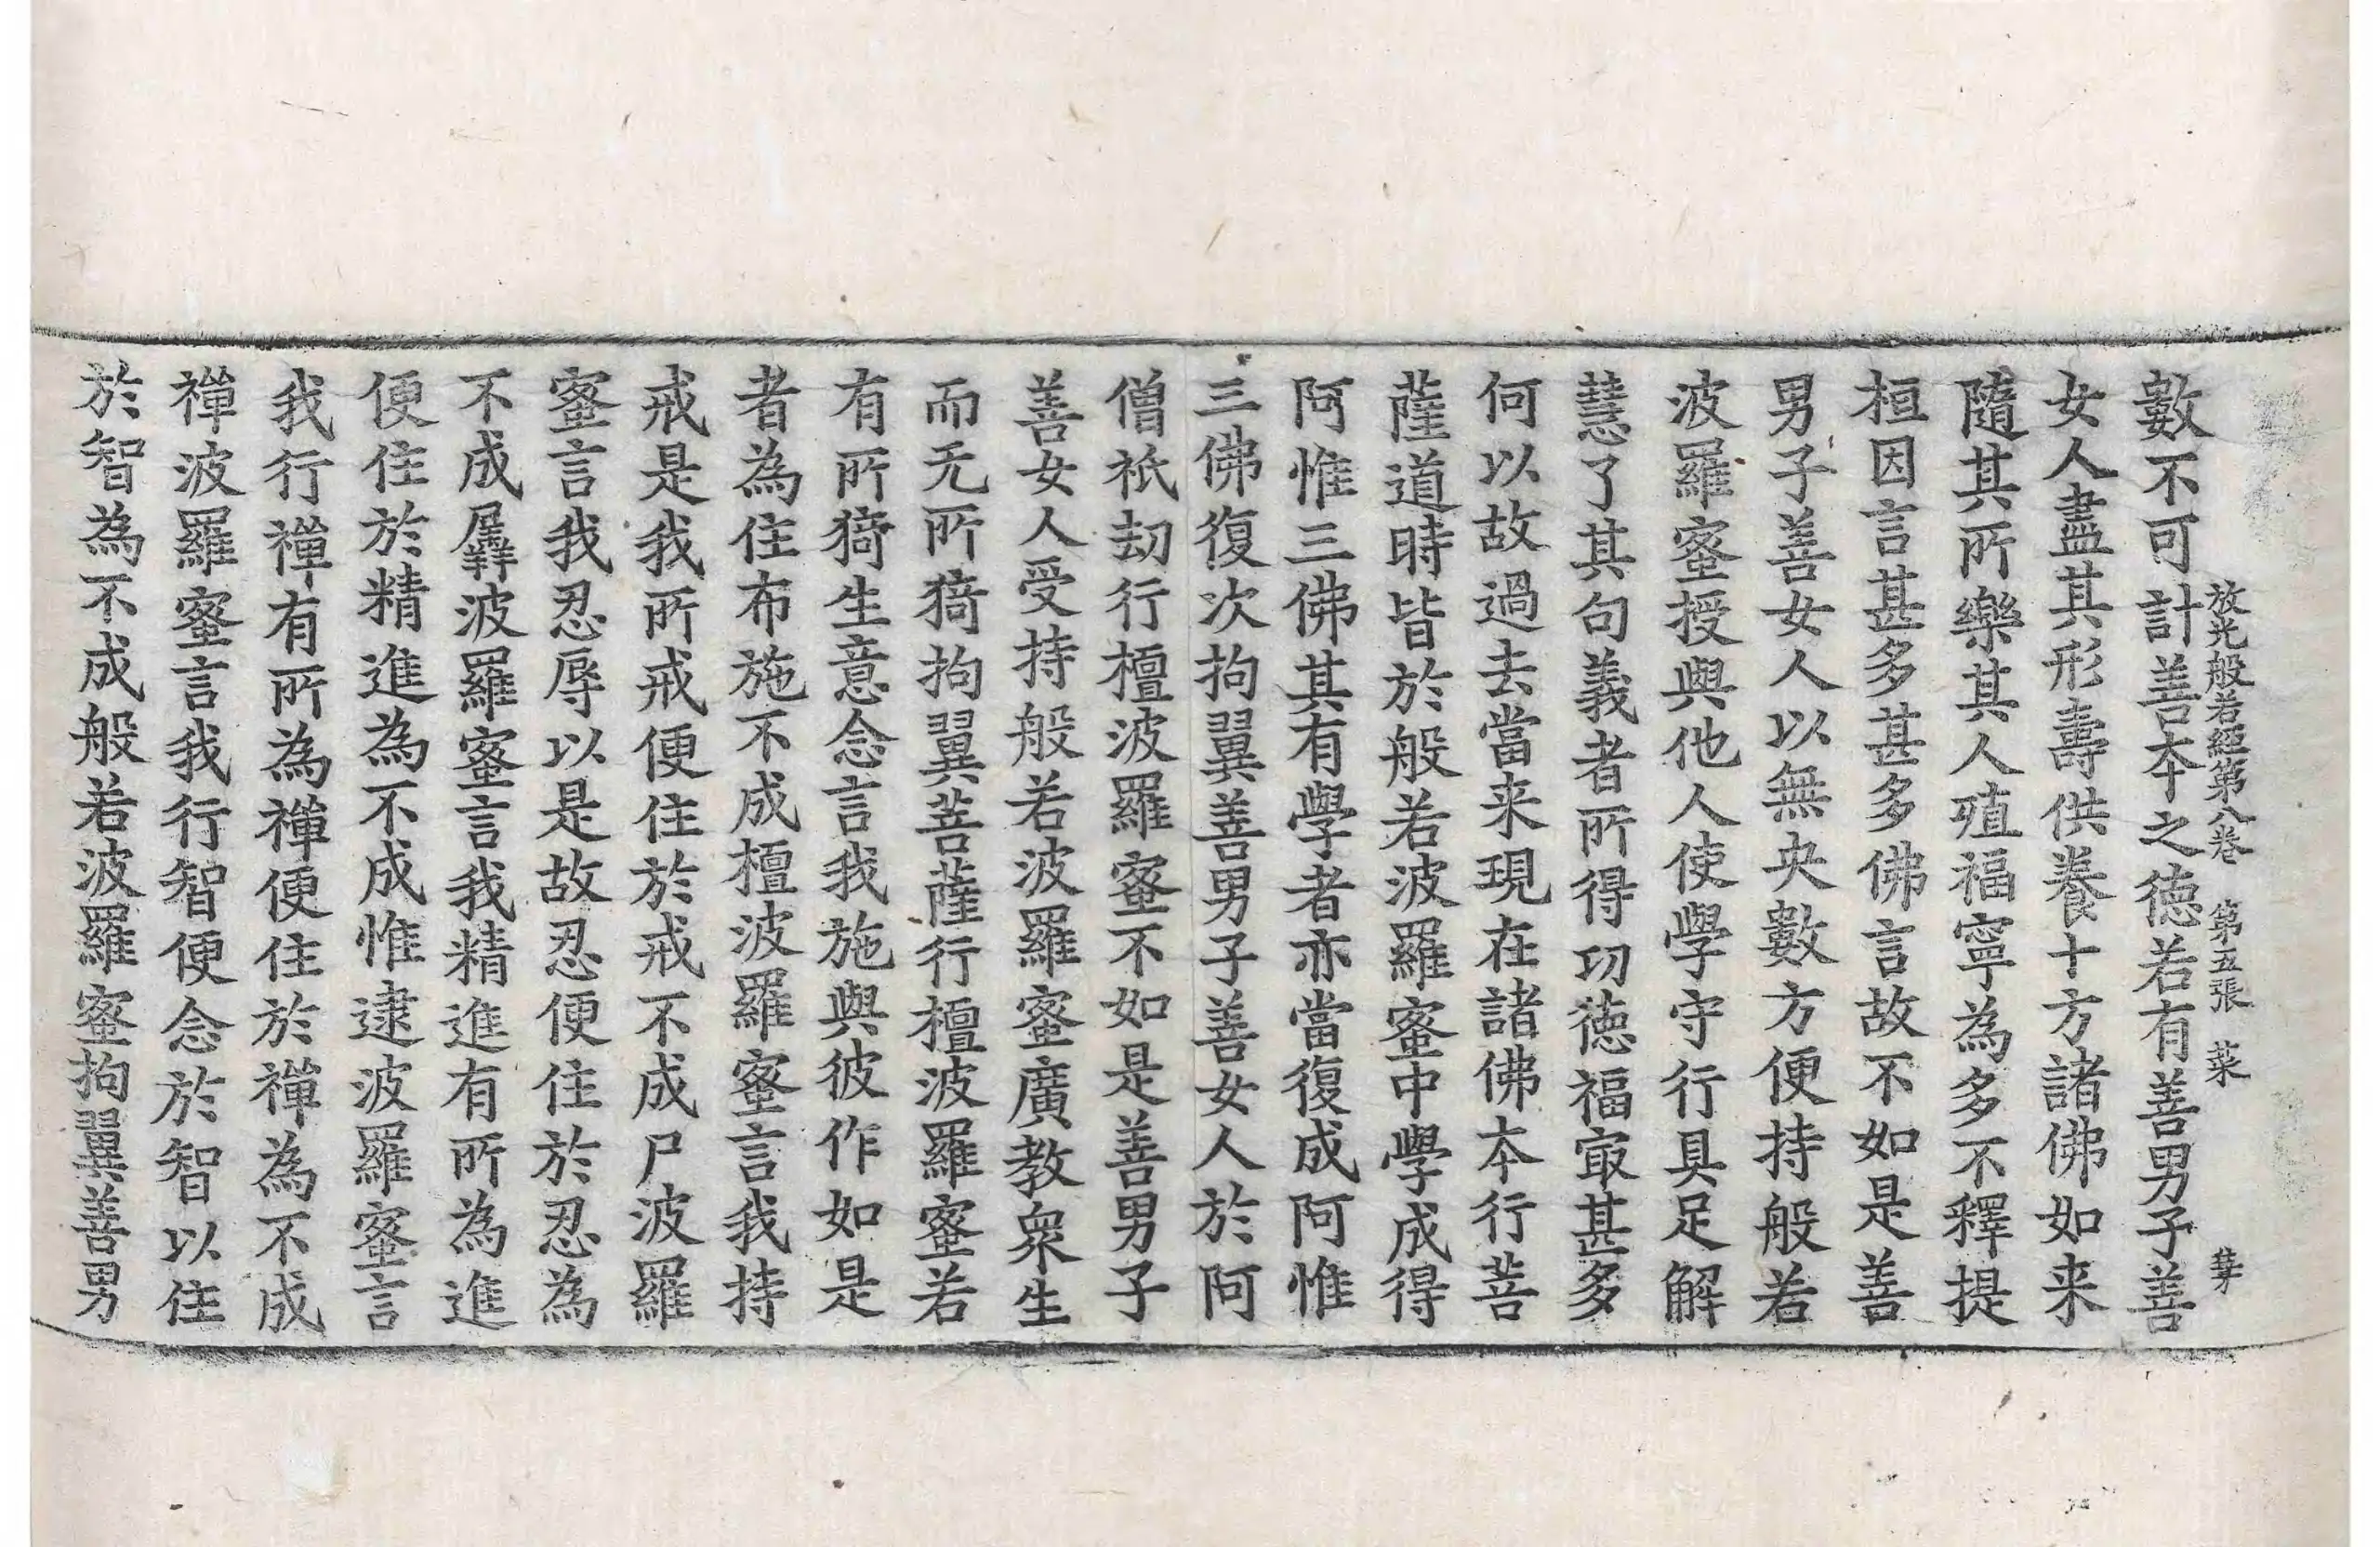 放光般若經第八卷　第五張　菜
數不可計善本之德若有善男子善
女人盡其形壽供養十方諸佛如来
隨其所樂其人殖福寧為多不釋提
桓因言甚多甚多佛言故不如是善
男子善女人以無央數方便持般若
波羅蜜授與他人使學守行具足解
慧了其句義者所得功德福㝡甚多
何以故過去當来現在諸佛本行菩
薩道時皆於般若波羅蜜中學成得
阿惟三佛其有學者亦當復成阿惟
三佛復次拘翼善男子善女人於阿
僧祇劫行檀波羅蜜不如是善男子
善女人受持般若波羅蜜廣教衆生
而无所猗拘翼菩薩行檀波羅蜜若
有所猗生意念言我施與彼作如是
者為住布施不成檀波羅蜜言我持
戒是我所戒便住於戒不成尸波羅
蜜言我忍辱以是故忍便住於忍為
不成羼波羅蜜言我精進有所為進
便住於精進為不成惟逮波羅蜜言
我行禪有所為禪便住於禪為不成
禪波羅蜜言我行智便念於智以住
於智為不成般若波羅蜜拘翼善男